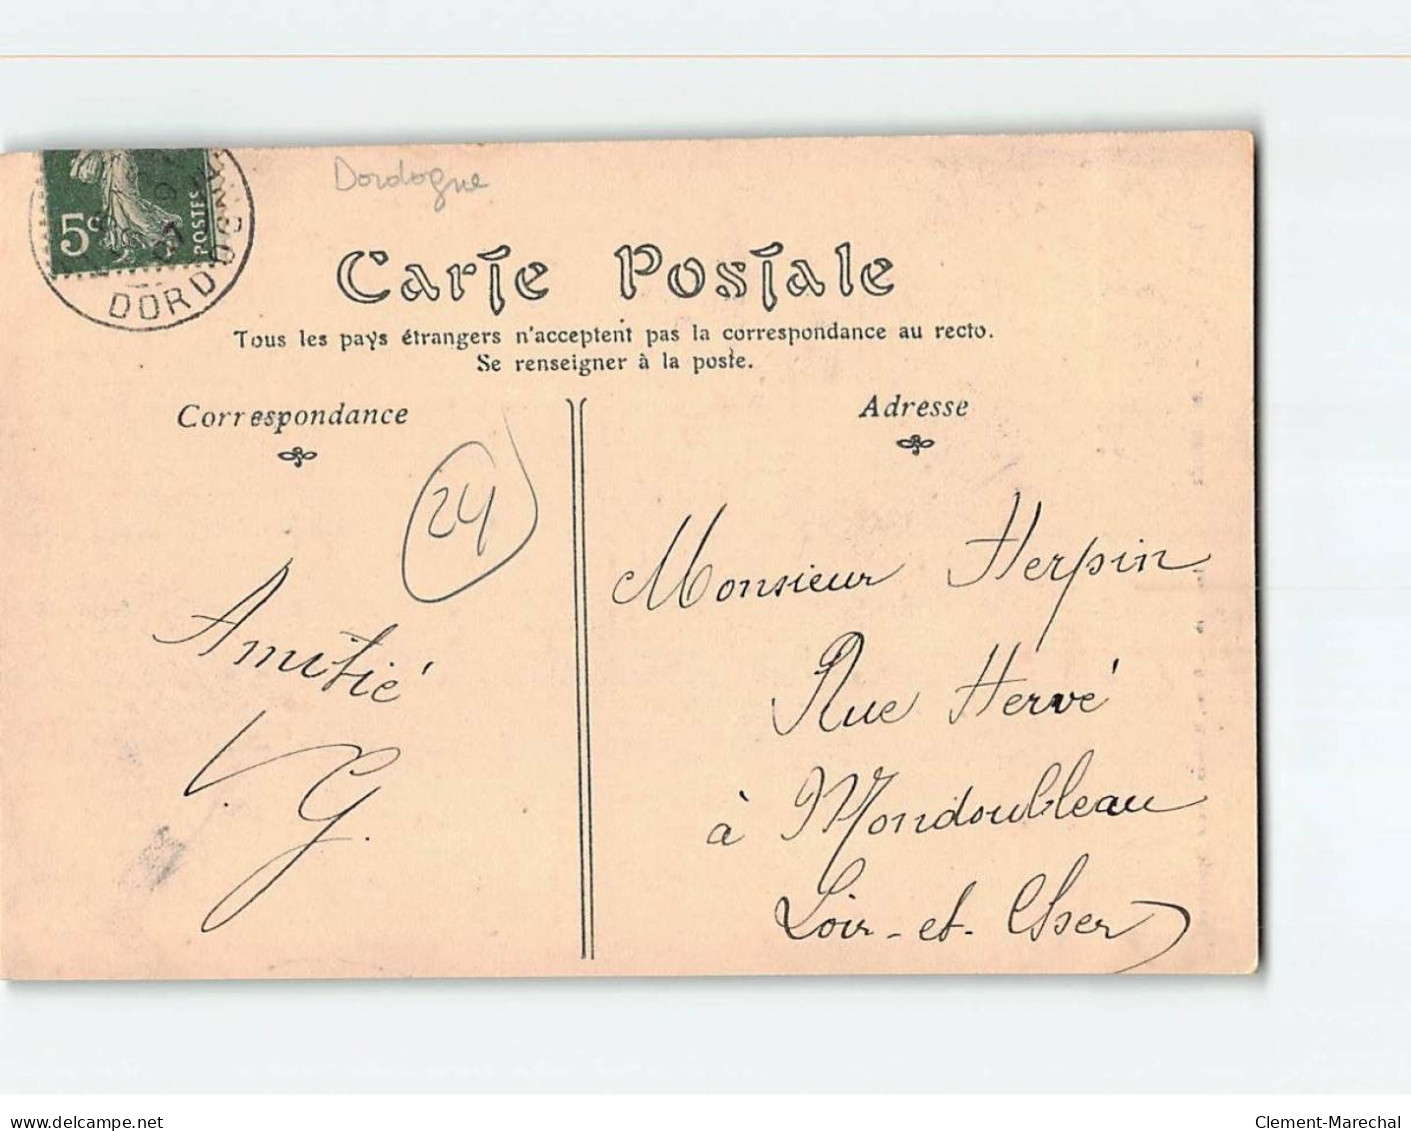 Dordogne
5c
POSTES
07
DORDOGNE
Carte Postale
Tous les pays étrangers n'acceptent pas la correspondance au recto.
Se renseigner à la poste.
Correspondance
Adresse
24
Amitié
V. G.
Monsieur Herpin
Rue Hervé
à Mondoubleau
Loir-et-Cher
www.delcampe.net
Clement-Marechal